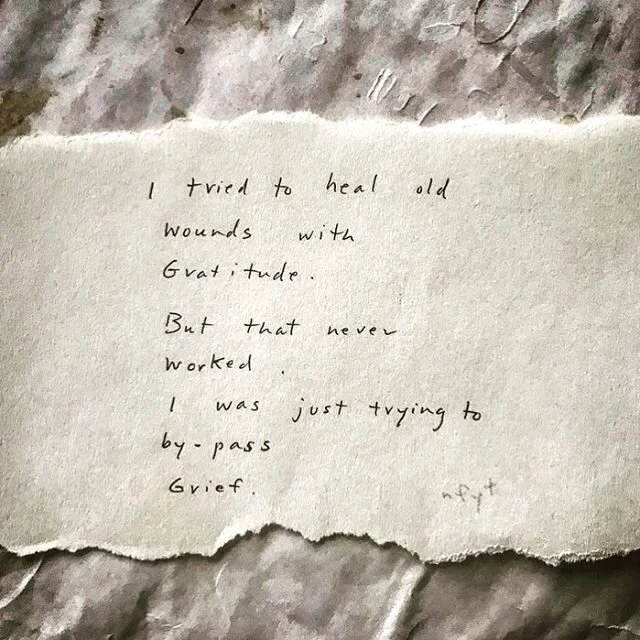 I tried to heal old
wounds with
Gratitude.
But that never
worked.
I was just trying to
by-pass
Grief.
nfyt